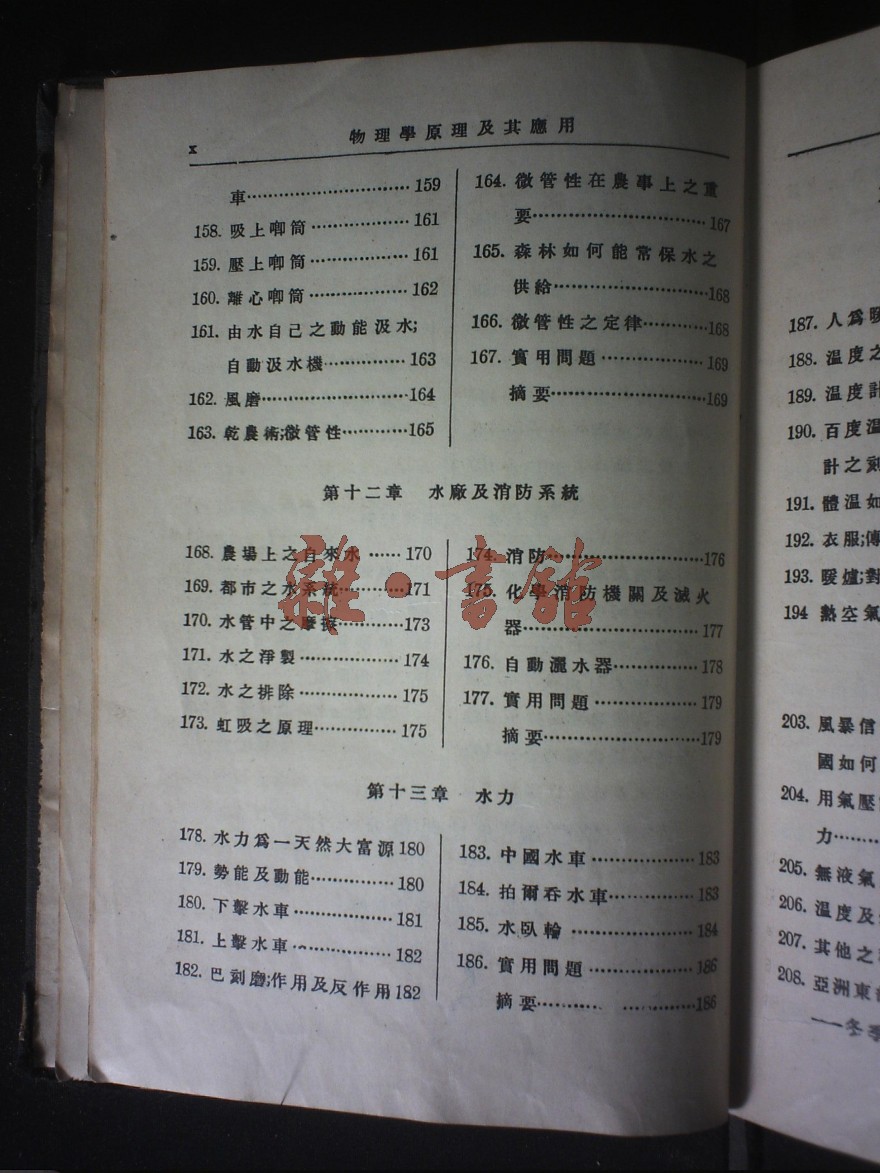 x
物理學原理及其應用
車……………………………159
158. 吸上唧筒………………161
159. 壓上唧筒………………161
160. 離心唧筒………………162
161. 由水自己之動能汲水;
自動汲水機……………163
162. 風磨………………………164
163. 乾農術;微管性…………165
164. 微管性在農事上之重
要……………………………167
165. 森林如何能常保水之
供給…………………………168
166. 微管性之定律…………168
167. 實用問題………………169
摘要…………………………169
第十二章 水廠及消防系統
168. 農場上之自來水……170
169. 都市之水系統…………171
170. 水管中之摩擦…………173
171. 水之淨製………………174
172. 水之排除………………175
173. 虹吸之原理……………175
174. 消防………………………176
175. 化學消防機關及滅火
器……………………………177
176. 自動灑水器……………178
177. 實用問題………………179
摘要…………………………179
雜·書館
第十三章 水力
178. 水力爲一天然大富源180
179. 勢能及動能……………180
180. 下擊水車………………181
181. 上擊水車………………182
182. 巴刻磨;作用及反作用182
183. 中國水車………………183
184. 拍爾吞水車……………183
185. 水臥輪…………………184
186. 實用問題………………186
摘要…………………………186
187. 人爲
188. 溫度之
189. 溫度計
190. 百度溫
計之刻
191. 體溫如
192. 衣服;傳
193. 暖爐;對
194 熱空氣
203. 風暴信
國如何
204. 用氣壓
力……
205. 無液氣
206. 溫度及
207. 其他之
208. 亞洲東
——冬季